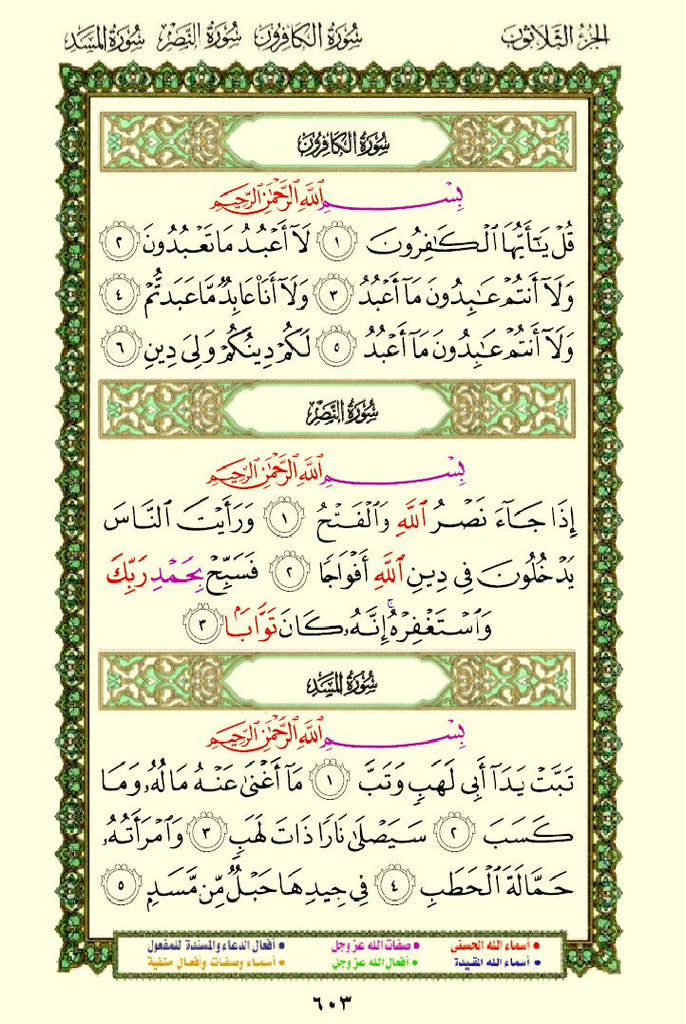 الجزء الثلاثون سورة الكافرون سورة النصر سورة المسد
سورة الكافرون
بِسْمِ ٱللَّهِ ٱلرَّحْمَٰنِ ٱلرَّحِيمِ
قُلْ يَـٰٓأَيُّهَا ٱلْكَـٰفِرُونَ ١ لَآ أَعْبُدُ مَا تَعْبُدُونَ ٢
وَلَآ أَنتُمْ عَـٰبِدُونَ مَآ أَعْبُدُ ٣ وَلَآ أَنَا۠ عَابِدٌ مَّا عَبَدتُّمْ ٤
وَلَآ أَنتُمْ عَـٰبِدُونَ مَآ أَعْبُدُ ٥ لَكُمْ دِينُكُمْ وَلِىَ دِينِ ٦
سورة النصر
بِسْمِ ٱللَّهِ ٱلرَّحْمَٰنِ ٱلرَّحِيمِ
إِذَا جَآءَ نَصْرُ ٱللَّهِ وَٱلْفَتْحُ ١ وَرَأَيْتَ ٱلنَّاسَ
يَدْخُلُونَ فِى دِينِ ٱللَّهِ أَفْوَاجًا ٢ فَسَبِّحْ بِحَمْدِ رَبِّكَ
وَٱسْتَغْفِرْهُ ۚ إِنَّهُۥ كَانَ تَوَّابًۢا ٣
سورة المسد
بِسْمِ ٱللَّهِ ٱلرَّحْمَٰنِ ٱلرَّحِيمِ
تَبَّتْ يَدَآ أَبِى لَهَبٍ وَتَبَّ ١ مَآ أَغْنَىٰ عَنْهُ مَالُهُۥ وَمَا
كَسَبَ ٢ سَيَصْلَىٰ نَارًا ذَاتَ لَهَبٍ ٣ وَٱمْرَأَتُهُۥ
حَمَّالَةَ ٱلْحَطَبِ ٤ فِى جِيدِهَا حَبْلٌ مِّن مَّسَدٍۭ ٥
• أسماء الله الحسنى • صفات الله عز وجل • أفعال الدعاء والمسندة للمفعول
• أسماء الله المقيدة • أفعال الله عز وجل • أسماء وصفات وأفعال منفية
٦٠٣